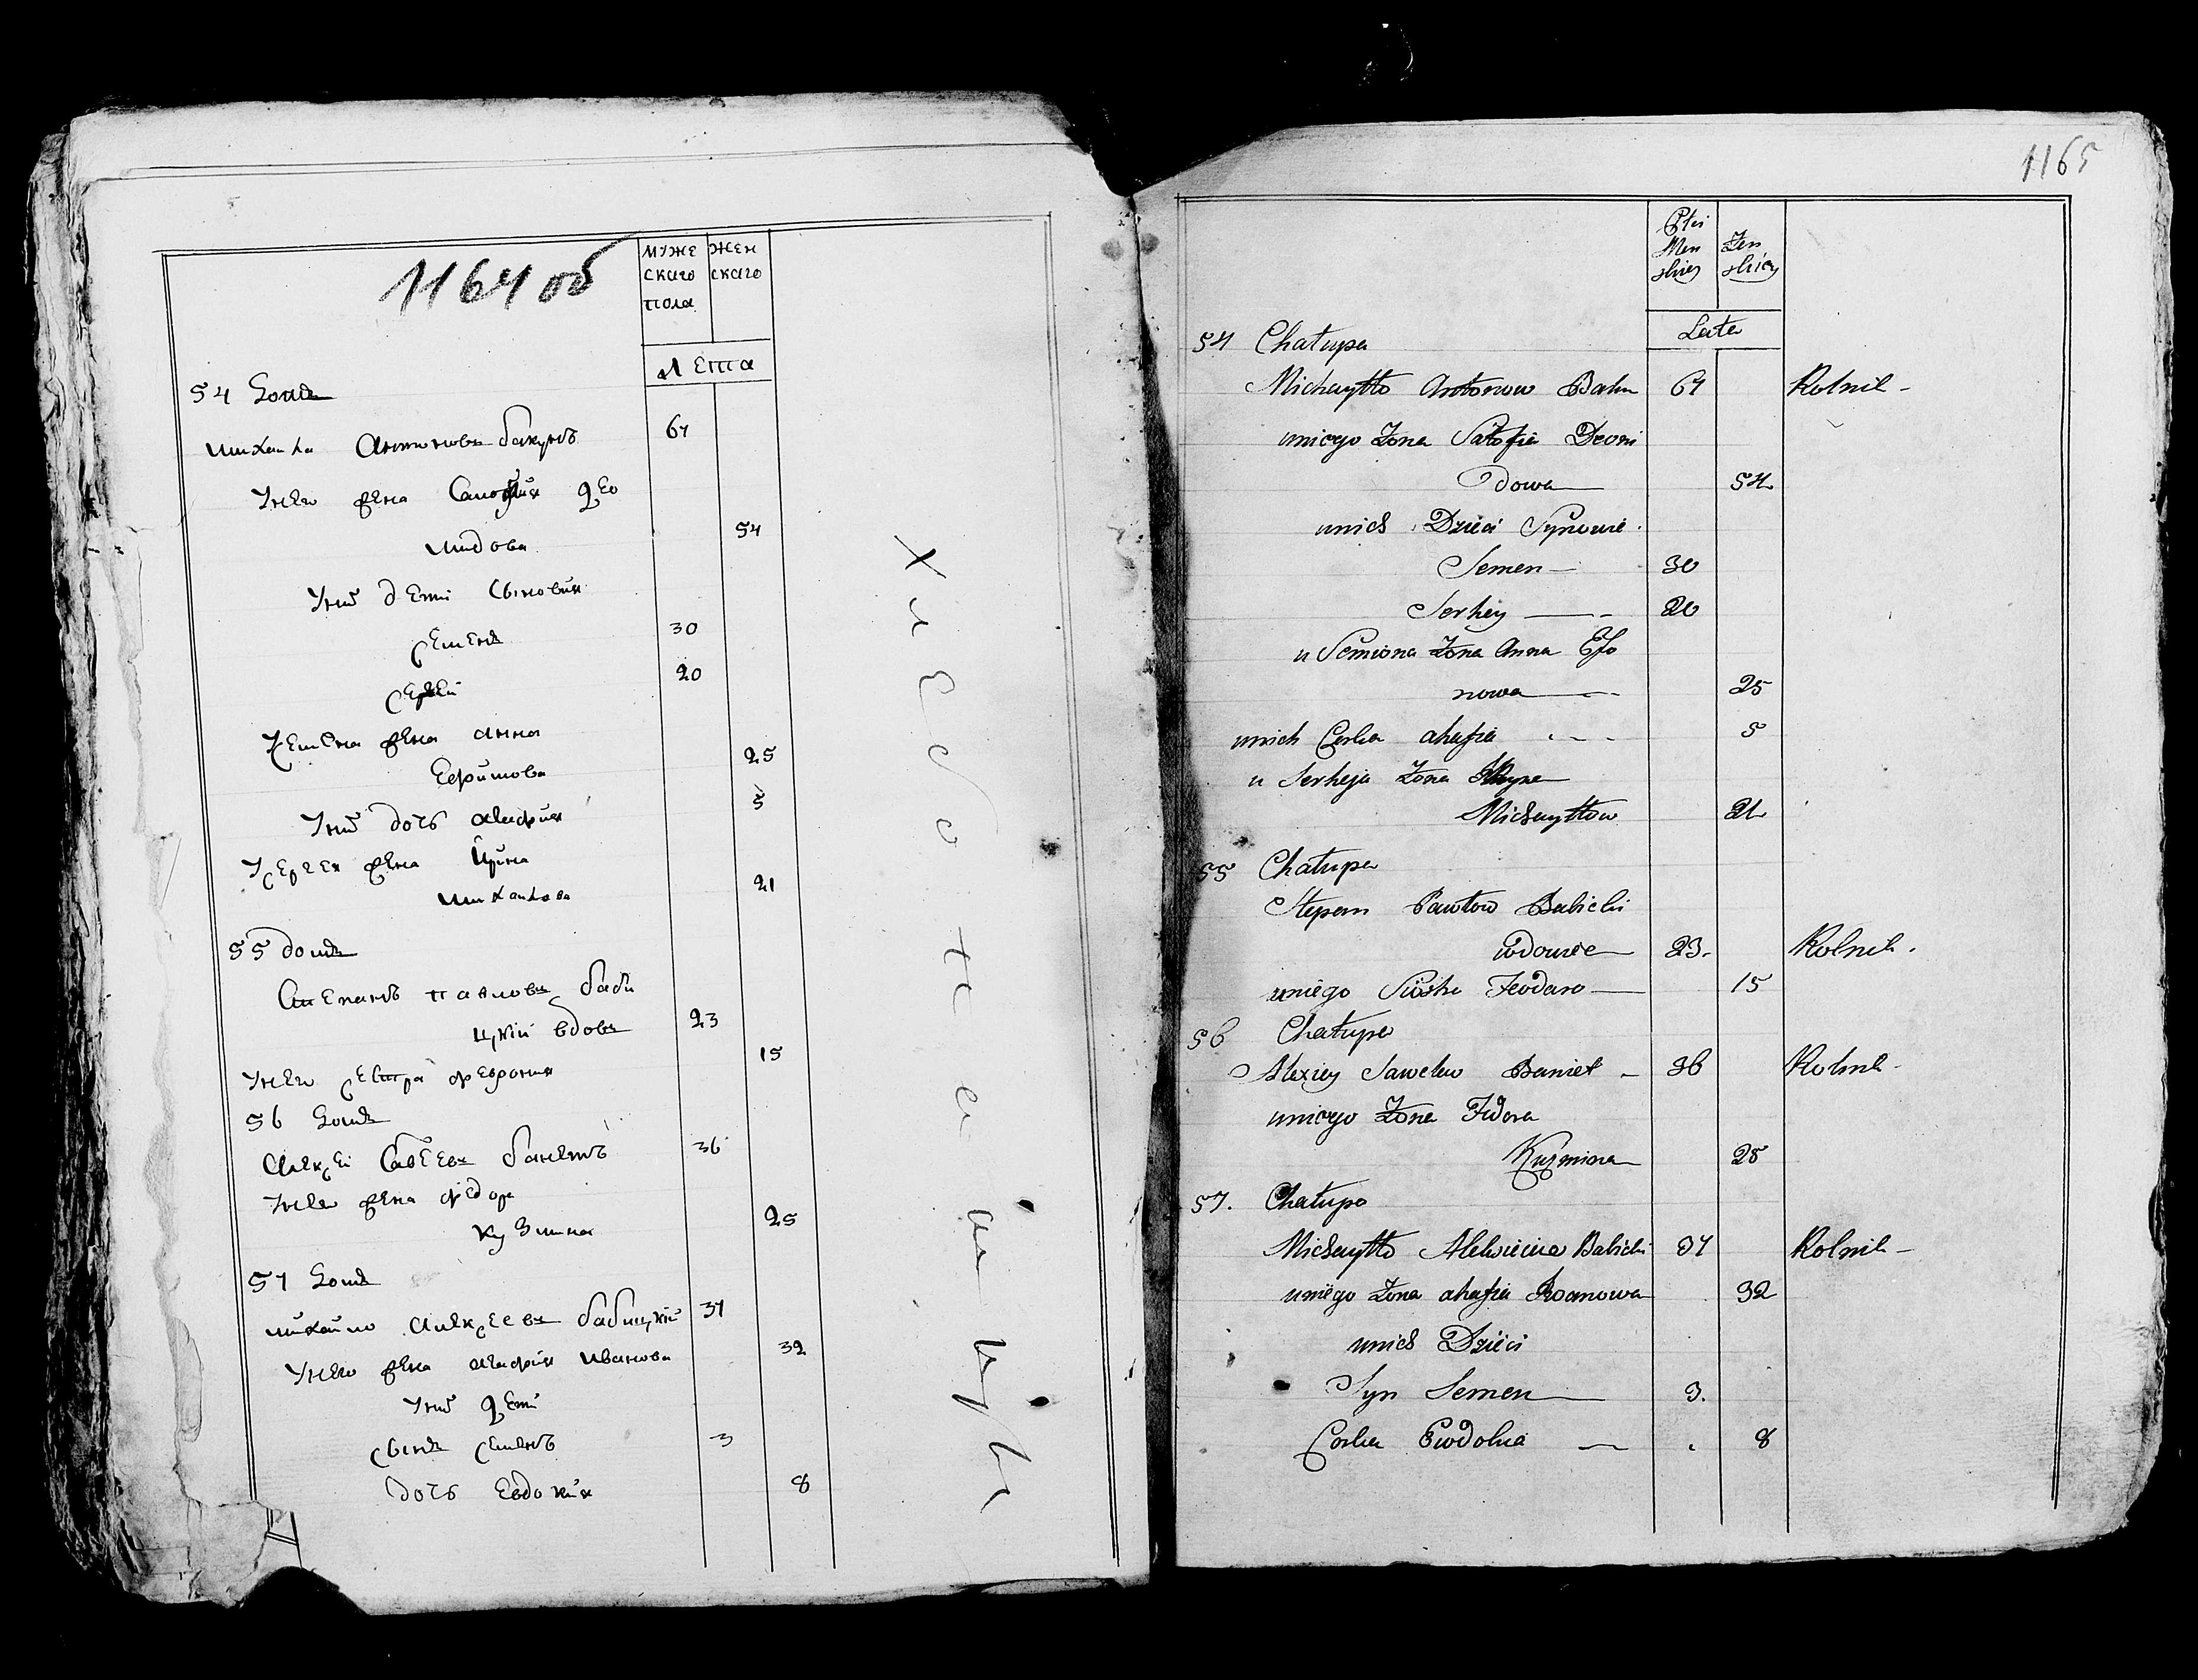 1164 об
муже
скаго
пола
жен
скаго
лета
54 Домъ
михаила Антоновъ бакунъ 67
унего жена Саломия део
мидова 54
уних дети Сыновия
семенъ 30
сергей 20
усемена жена анна
Ефимова 25
уних дочь агафия 5
усергея жена Ирина
михайлова 21
55 домъ
Степанъ павловъ баби
цкий вдовъ 23
унего сестра феврония 15
56 Домъ
Алексеi Савеевъ банетъ 36
унего жена федора
кузмина 25
57 Домъ
михайло Алексеевъ бабицкий 37
унего жена агафия иванова 32
уних дети
сынъ семенъ 3
дочь Евдокия 8
хлебопашцы
1165
Płci
Men
skiey
Zen
skiey
Lata
54 Chałupa
Michayłło Antonow Bakun 67 Rolnik -
uniego Zona Sałofia Deoni
dowa 54
unich Dzieci Synowie
Semen 30
Serhey 20
u Semiona Zona Anna Efo
nowa 25
unich Corka ahafia 5
u Serheja Zona
Michayłłow 21
55 Chałupa
Stepan Pawłow Babicki
wdowiec 23. Rolnik.
uniego Siostra Feodara 15
56 Chałupa
Alexiey Sawelew Baniet - 36 Rolnik -
uniego Zona Fidora
Kuzmina 25
57. Chałupa
Michayłło Alekwiciew Babicki 37 Rolnik -
uniego Zona ahafia Roanowa 32
unich Dzieci
Syn Semen 3.
Corka Ewdokia 8